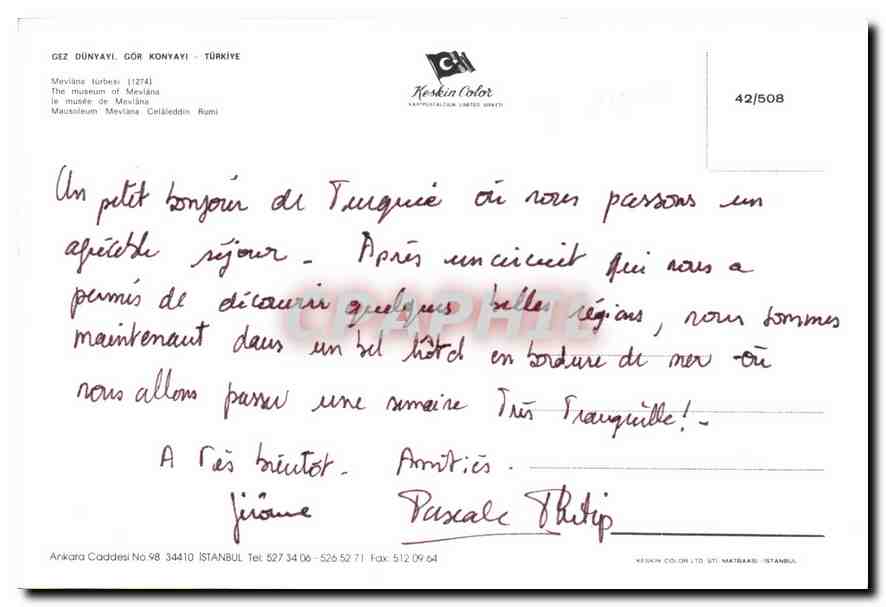 GEZ DÜNYAYI, GÖR KONYAYI - TÜRKİYE
Mevlâna türbesi (1274)
The museum of Mevlâna
le musée de Mevlâna
Mausoleum Mevlana Celâleddin Rumi
Keskin Color
KARTPOSTALCILIK LIMITED ŞİRKETİ
42/508
Un petit bonjour de Turquie où nous passons un
agréable séjour - Après un circuit qui nous a
permis de découvrir quelques belles régions, nous sommes
maintenant dans un bel hôtel en bordure de mer où
nous allons passer une semaine Très Tranquille! -
A Très bientôt - Amitiés.
Jérôme Pascale Philip
CPAPHIL
Ankara Caddesi No.98 34410 İSTANBUL Tel: 527 34 06 - 526 52 71 Fax: 512 09 64
KESKIN COLOR LTD. ŞTİ. MATBAASI - İSTANBUL